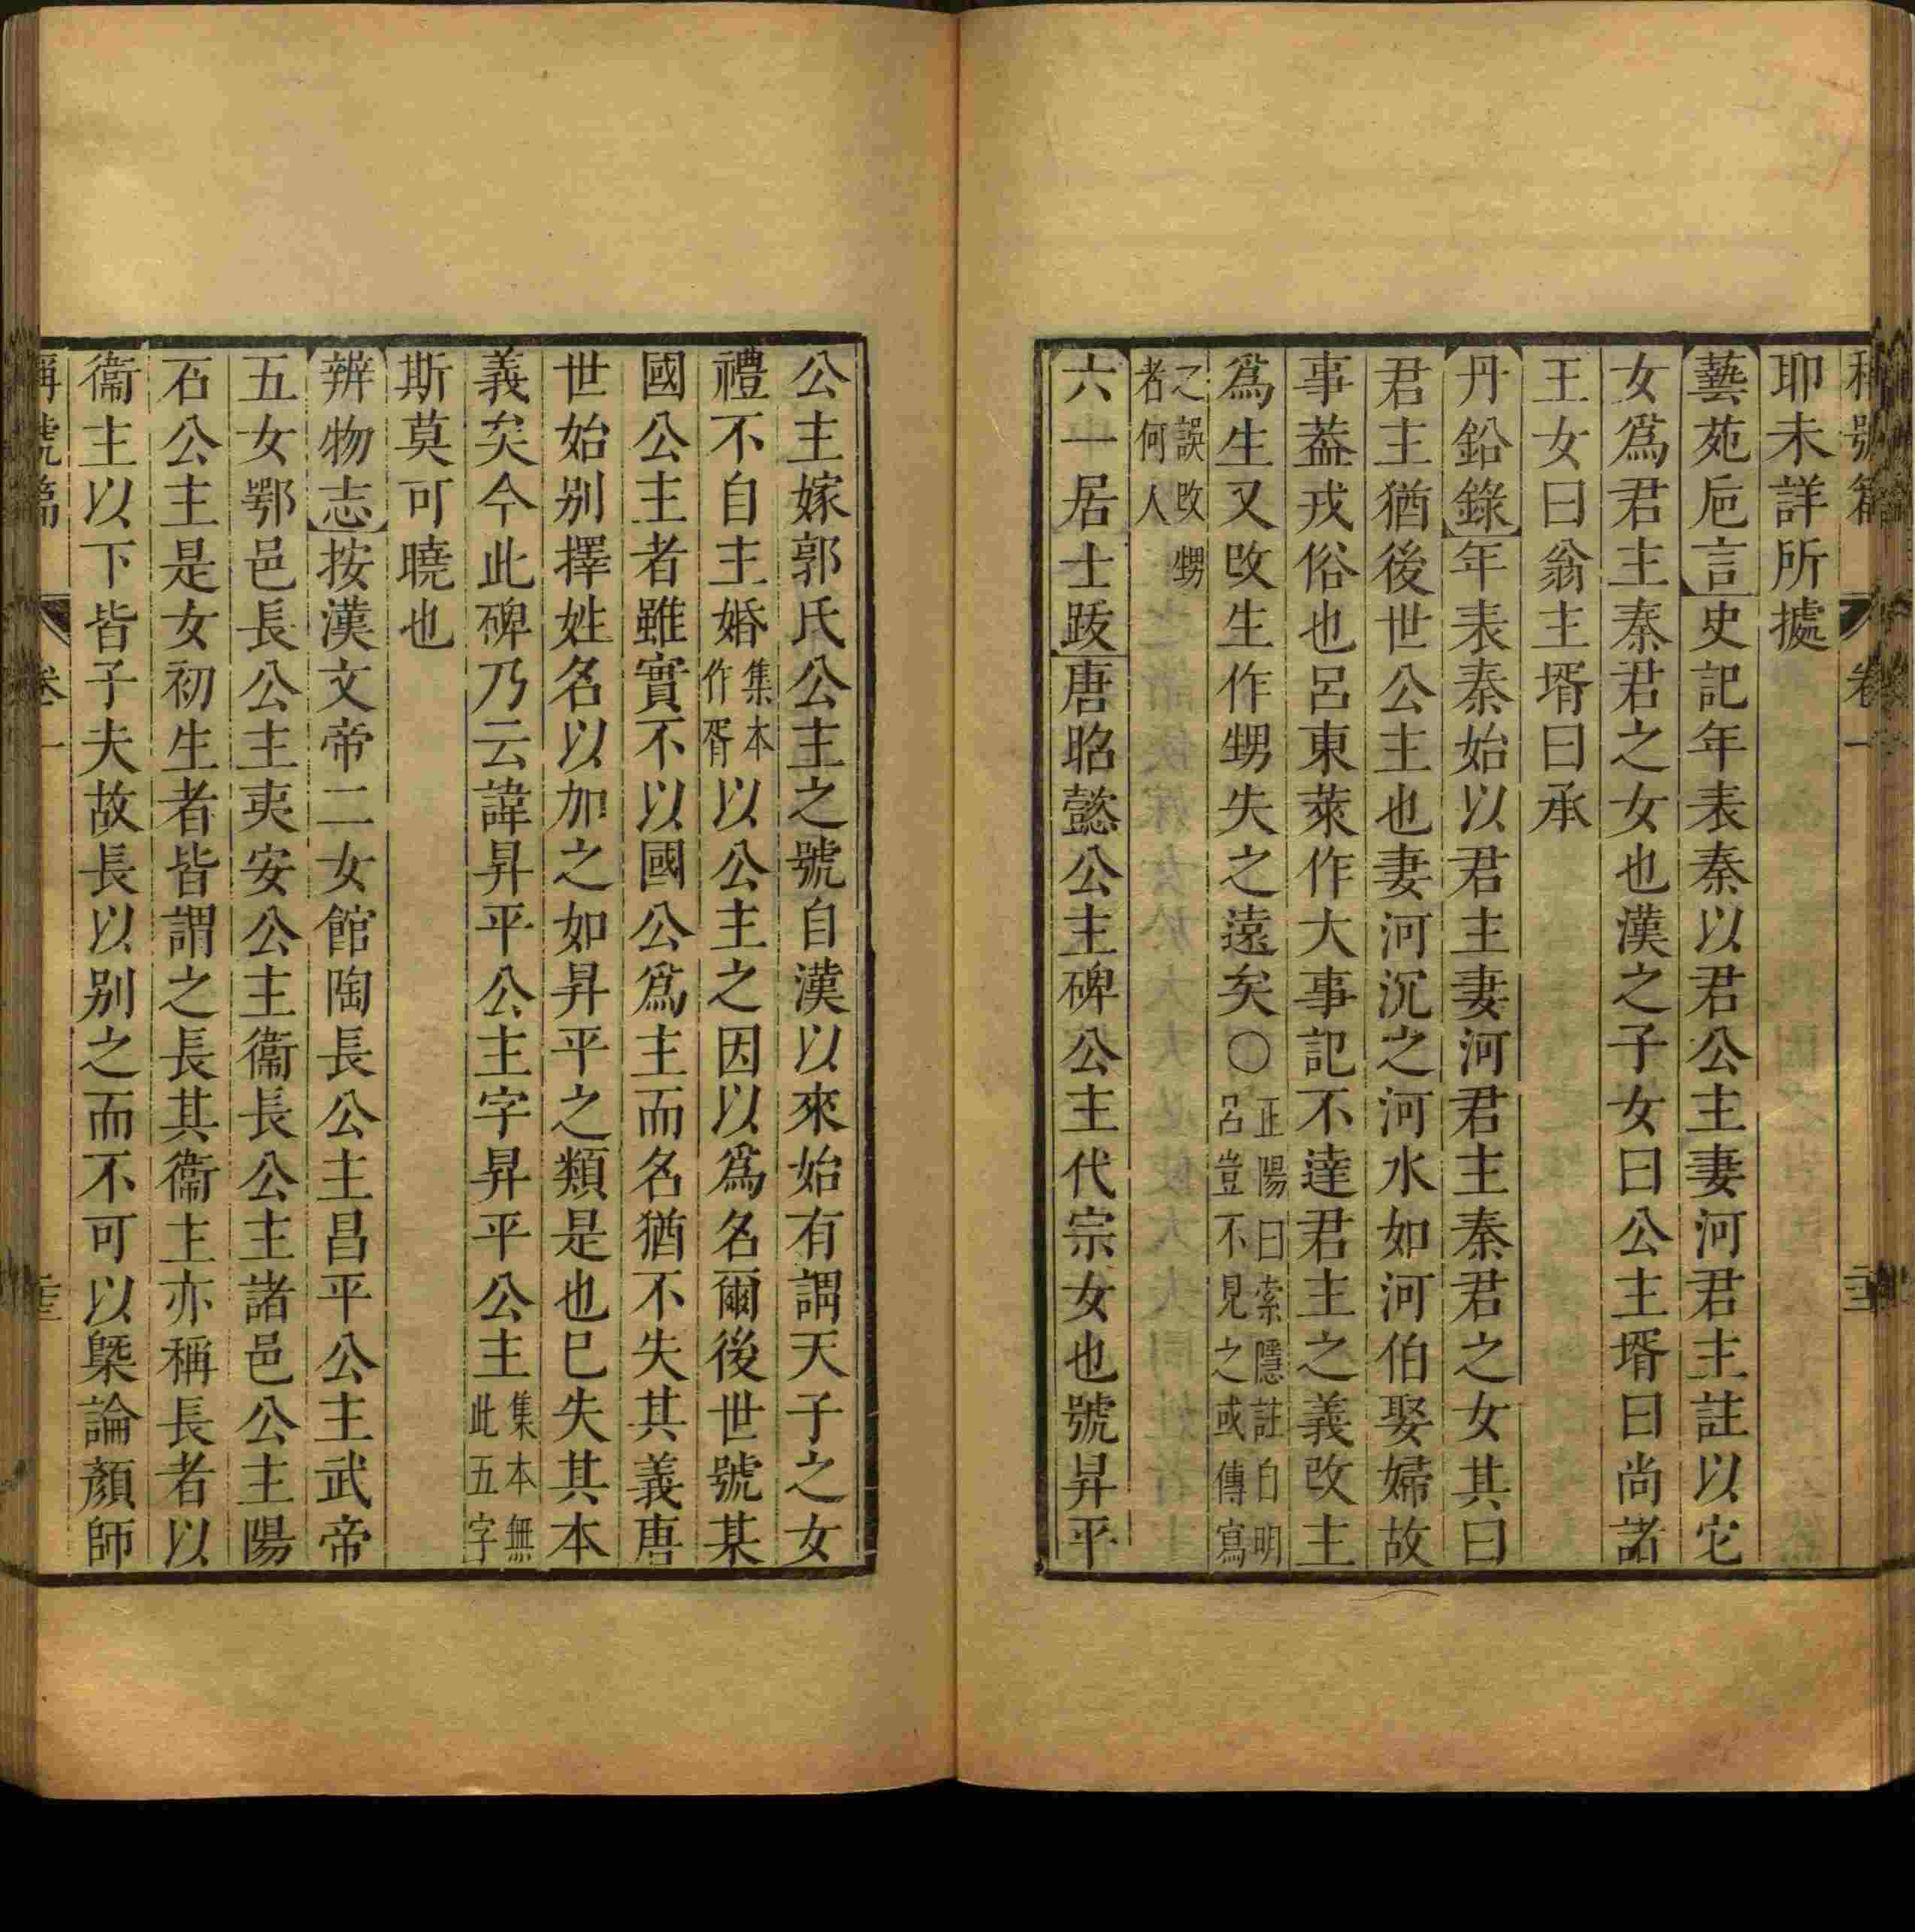 稱號篇 卷一
耶未詳所據
藝苑巵言史記年表秦以君公主妻河君主註以它
女爲君主秦君之女也漢之子女曰公主壻曰尚諸
王女曰翁主壻曰承
丹鉛錄年表秦始以君主妻河君主秦君之女其曰
君主猶後世公主也妻河沉之河水如河伯娶婦故
事葢戎俗也呂東萊作大事記不達君主之義改主
爲生又改生作甥失之遠矣○正陽曰索隱註自明
呂豈不見之或傳寫
之誤改甥
者何人
六一居士跋唐昭懿公主碑公主代宗女也號昇平
公主嫁郭氏公主之號自漢以來始有謂天子之女
禮不自主婚集本作胥以公主之因以爲名爾後世號某
國公主者雖實不以國公爲主而名猶不失其義唐
世始别擇姓名以加之如昇平之類是也已失其本
義矣今此碑乃云諱昇平公主字昇平公主集本無此五字
斯莫可曉也
辨物志按漢文帝二女館陶長公主昌平公主武帝
五女鄂邑長公主夷安公主衞長公主諸邑公主陽
石公主是女初生者皆謂之長其衞主亦稱長者以
衞主以下皆子夫故長以别之而不可以槩論顏師
稱號篇 卷一